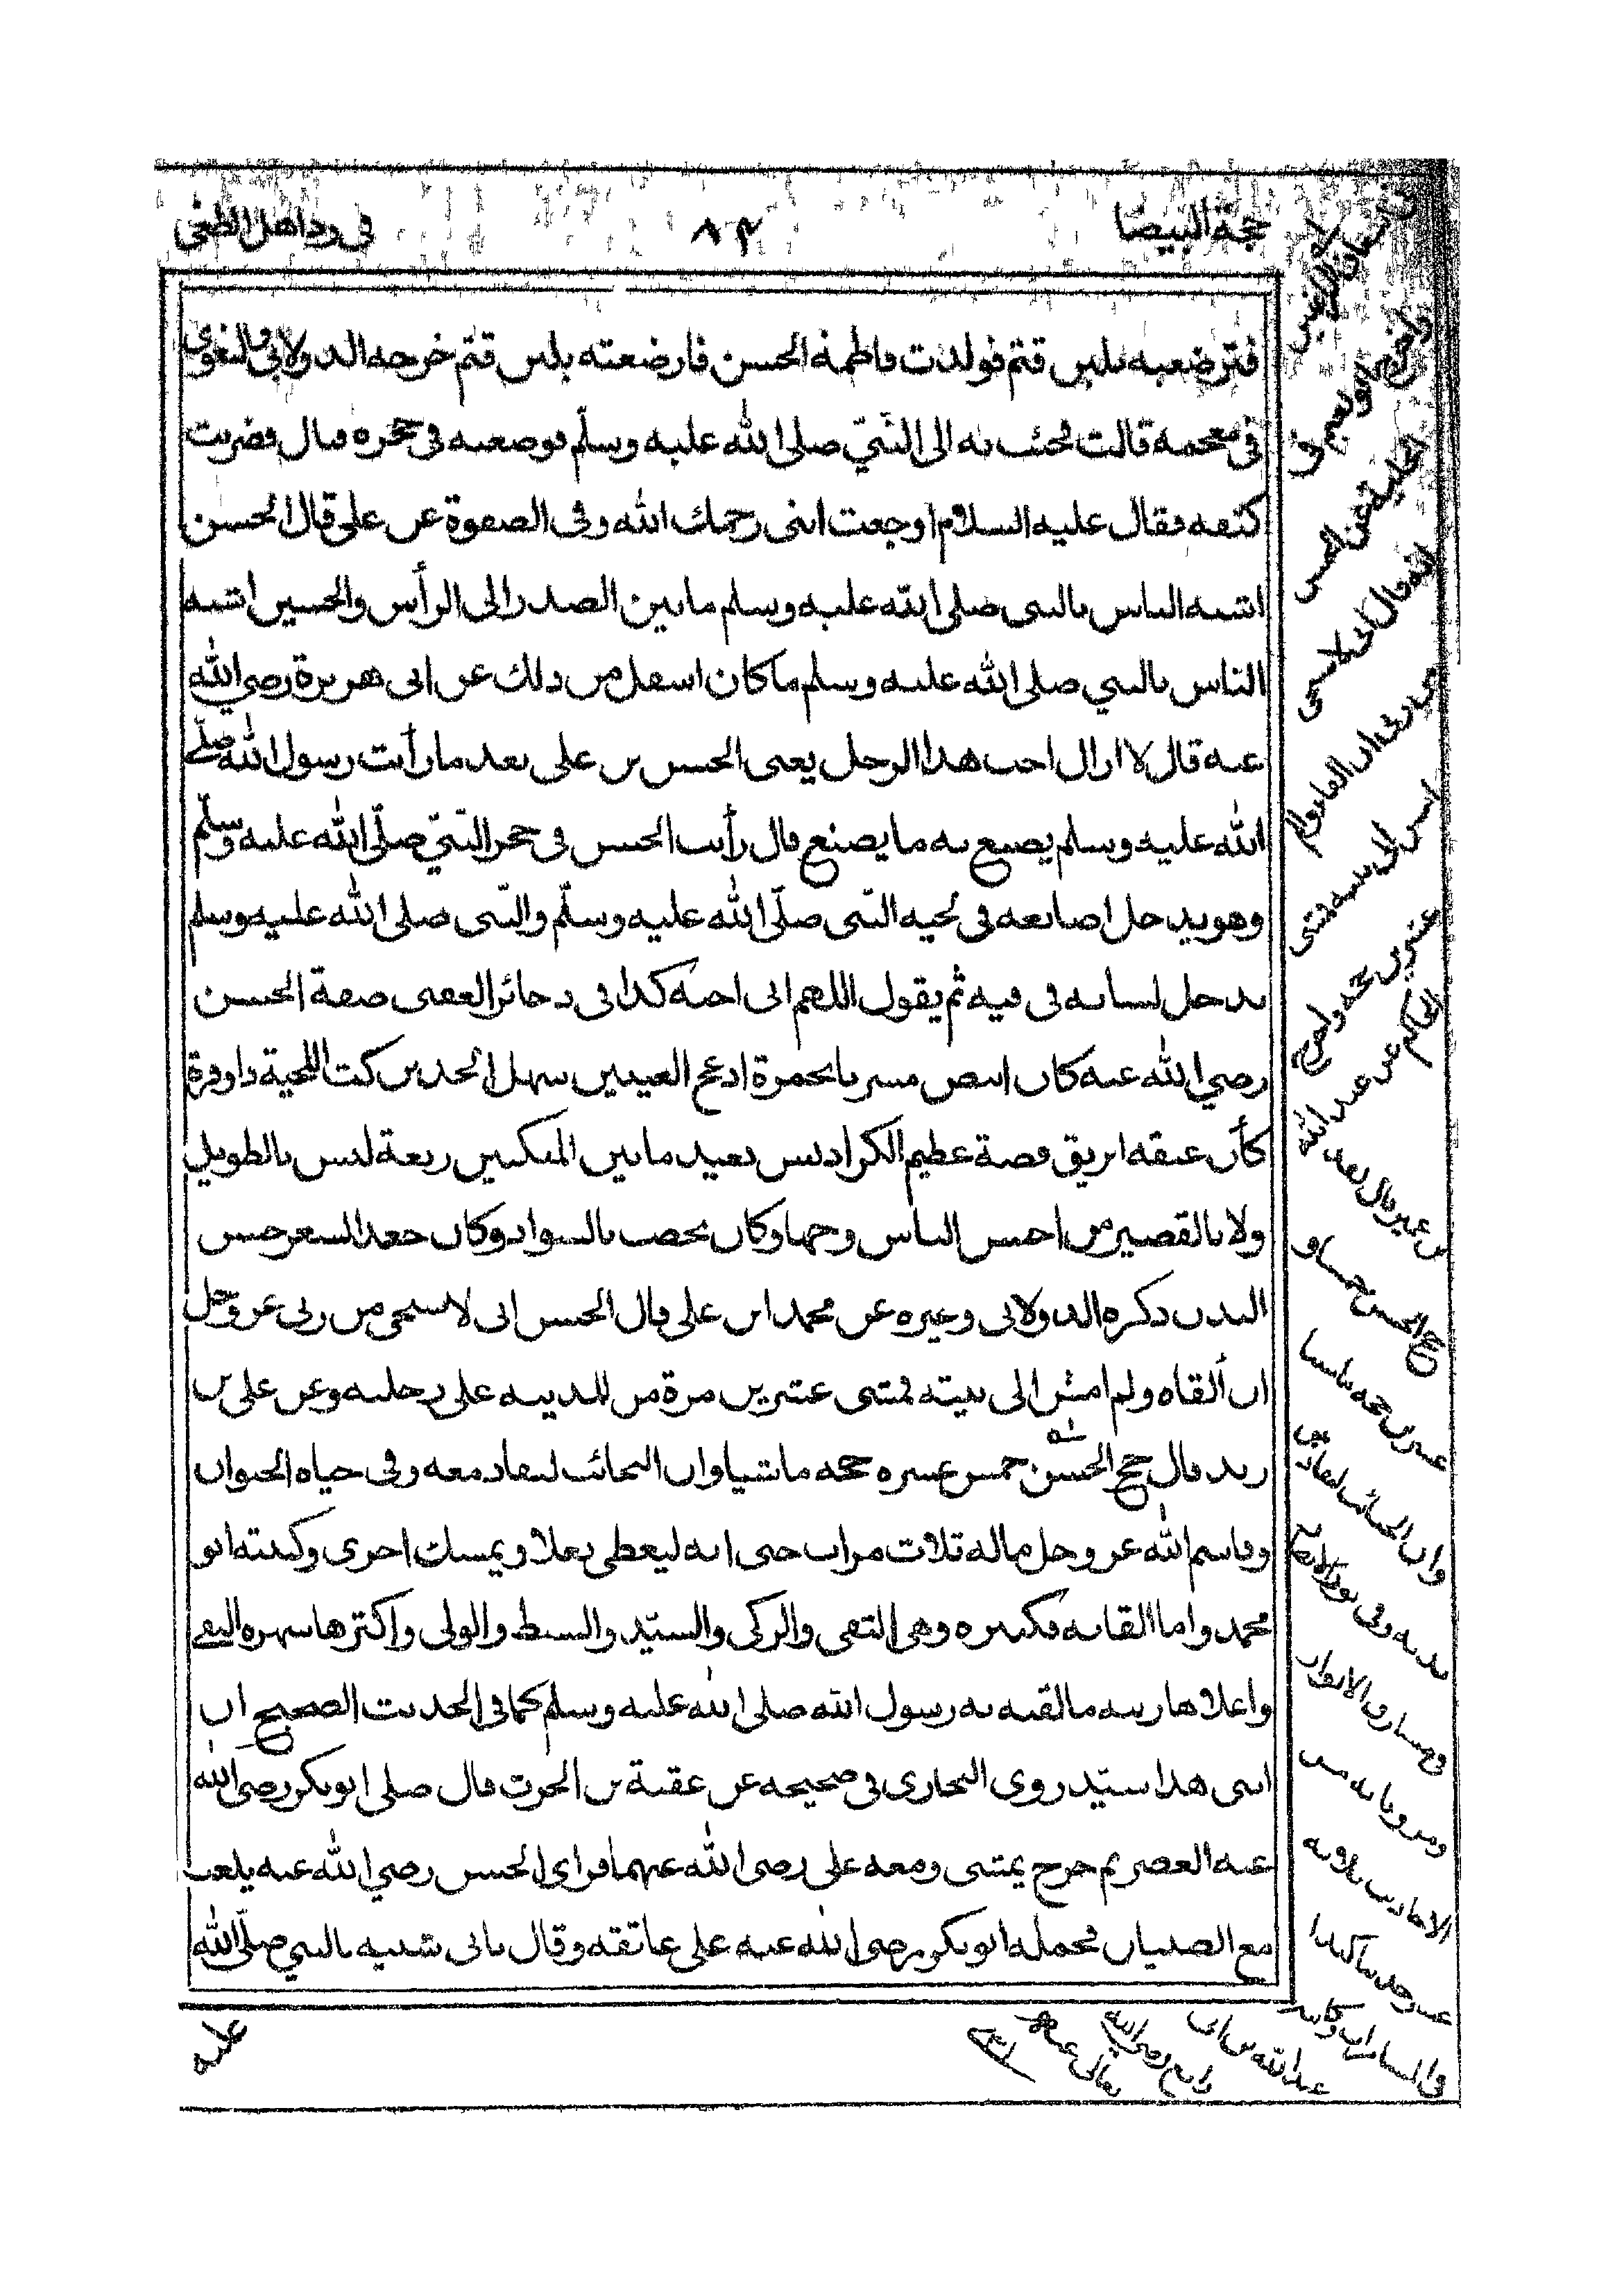 حجة البيضا
٨٢
في رد اهل الطغى
فترضعيه بلبن قثم فولدت فاطمة الحسن فارضعته بلبن قثم خرجه الدولابي والبغوي
في معجمه قالت فجئت به الى النّبيّ صلى الله عليه وسلّم فوضعته في حجره فبال فضربت
كتفه فقال عليه السلام اوجعت ابنى رحمك الله وفى الصفوة عن على قال الحسن
اشبه الناس بالنبى صلى الله عليه وسلم مابين الصدر الى الرأس والحسين اشبه
الناس بالنبي صلى الله عليه وسلم ماكان اسفل من ذلك عن ابى هريرة رضي الله
عنه قال لا ازال احب هذا الرجل يعنى الحسن بن على بعد مارأيت رسول الله صلّى
الله عليه وسلم يصنع به مايصنع قال رأيت الحسن فى حجر النّبيّ صلّى الله عليه وسلّم
وهو يدخل اصابعه فى لحيه النّبى صلّى الله عليه وسلّم والنّبى صلى الله عليه وسلم
يدخل لسانه فى فيه ثم يقول اللهم انى احبّه كذا فى ذخائر العقبى صفة الحسن
رضي الله عنه كان ابيض مشربا بحمرة ادعج العينين سهل الخدين كث اللحية ذاوفرة
كأن عنقه ابريق فضة عظيم الكراديس بعيد مابين المنكبين ربعة ليس بالطويل
ولا بالقصير من احسن الناس وجها وكان يخضب بالسواد وكان جعد الشعر حسن
البدن ذكره الدولابى وغيره عن محمد ابن على قال الحسن انى لاستحى من ربى عز وجل
ان ألقاه ولم امش الى بيته فمشى عشرين مرة من المدينه على رجليه وعن على بن
زيد قال حج الحسن خمس عشره حجه ماشيا وان النجائب لتقاد معه وفى حياه الحيوان
وقاسم الله عز وجل ماله ثلاث مرات حتى انه ليعطى نعلا ويمسك اخرى وكنيته ابو
محمد واما القابه فكثيره وهى التقى والزكى والسيّد والسبط والولى واكثرها شهره التقى
واعلاها رتبه مالقبه به رسول الله صلى الله عليه وسلم كما فى الحديث الصحيح ان
ابنى هذا سيّد روى البخارى فى صحيحه عن عقبة بن الحرث قال صلى ابوبكر رضى الله
عنه العصر ثم خرج يمشى ومعه على رضى الله عنهما فراى الحسن رضي الله عنه يلعب
مع الصبيان فحمله ابوبكر رضى الله عنه على عاتقه وقال بابى شبيه بالنبي صلّى الله
عليه
واخرج ابو نعيم فى
الحلية عن الحسن
انه قال انى لاستحى
من ربى ان القاه ولم
امش الى بيته فمشى
عشرين حجه واخرج
الحاكم عن عبد الله
بن عمير قال لقد
حج الحسن خمسا و
عشرين حجه ماشيا
وان النجائب لتقاد بين